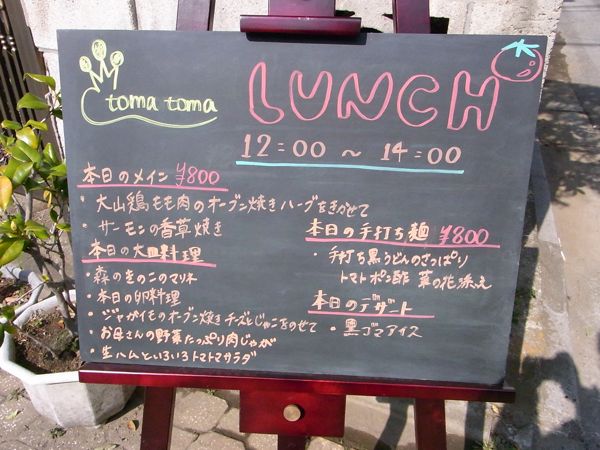 toma toma
LUNCH
12:00 〜 14:00
本日のメイン ¥800
・大山鶏もも肉のオーブン焼きハーブをきかせて
・サーモンの香草焼き
本日の大皿料理
・森のきのこのマリネ
・本日の卵料理
・ジャガイモのオーブン焼きチーズとじゃこをのせて
・お母さんの野菜たっぷり肉じゃが
・生ハムといろいろトマトサラダ
本日の手打ち麺 ¥800
・手打ち黒うどんのさっぱり
トマトポン酢 菜の花添え
本日のデザート
・黒ゴマアイス